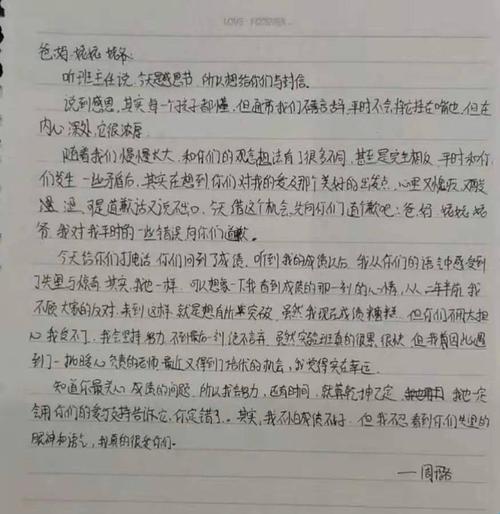 LOVE FOREVER
爸、妈、妮妮、爷爷:
听班主任说，今天是感恩节，所以想给你们写封信。
说到感恩，其实每一个孩子都懂，但通常我们不善言辞，平时不会将它挂在嘴边，但在
内心深处，它很浓厚。
随着我们慢慢长大，和你们的观念想法有了很多不同，甚至是完全相反，平时和你
们发生一些矛盾后，其实在想到你们对我的爱及那个美好的出发点，心里又愧疚，
可是道歉话又说不出口，今天借这个机会，先向你们道个歉吧：爸、妈、妮妮、爷
爷，我对我平时的一些错误向你们道歉。
今天给你们打电话，你们问到了成绩，听到我的成绩以后，我从你们的语气中感受到
了失望与惊奇，其实，我也一样，可以想象一下我看到成绩的那一刻的心情，从二年前，我
不顾大家的反对，来到这样，就是想有所突破，虽然我现在成绩糟糕，但你们不用太担
心，我受不了，我会坚持努力，不到最后一刻绝不言弃，虽然实验班真的很累，很快，但我有因此遇
到了一批暖心负责的老师，最近又得到了培优的机会，我觉得实在幸运。
知道你最关心成绩的问题，所以我会努力，还有时间，就算乾坤已定，我也一定
会用你们的爱与支持告诉它，你定错了。其实，我不怕成绩不好，但我不忍看到你们失望的
眼神和语气，我真的很爱你们。
——周璐